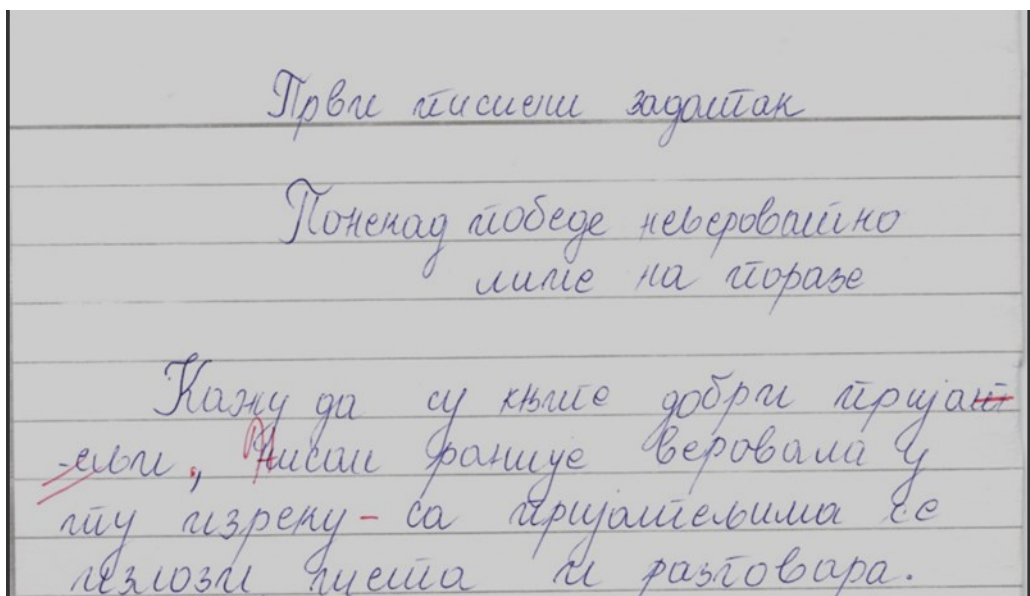 Први писмени задатак
Понекад победе невероватно
личе на поразе
Кажу да су књиге добри пријат-
-ељи. Нисам раније веровала у
ту изреку - са пријатељима се
излази, шета и разговара.